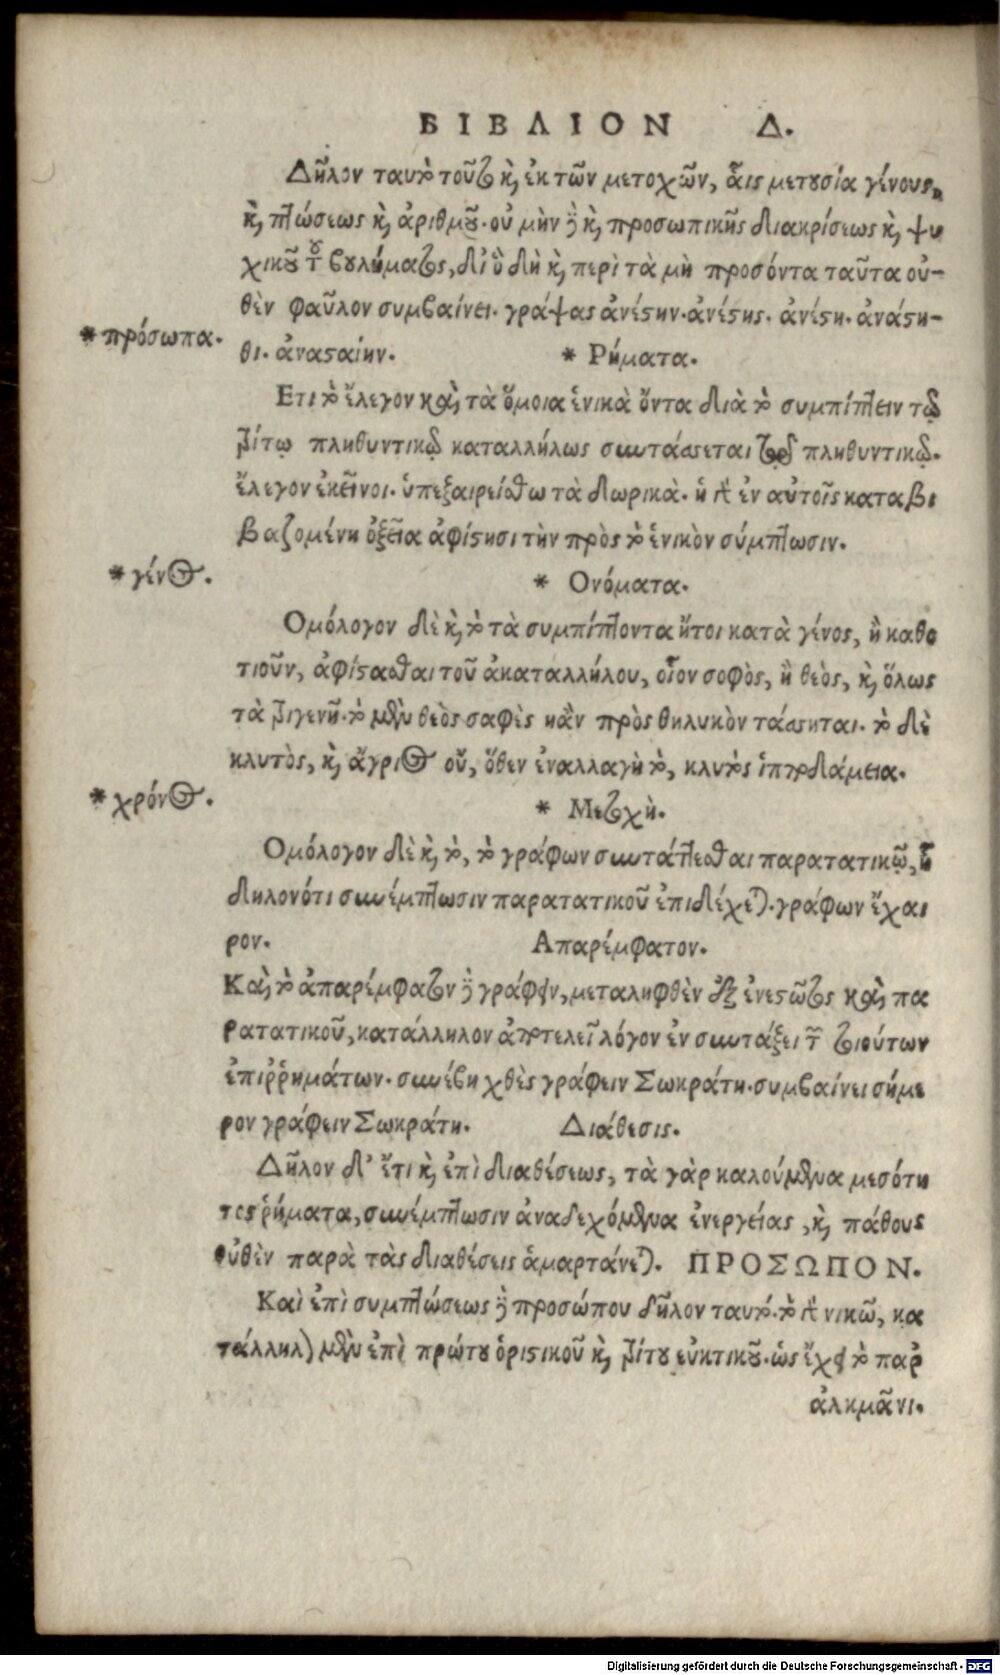 ΒΙΒΛΙΟΝ Δ.
Δῆλον ταυτὸ τοῦτο καὶ ἐκ τῶν μετοχῶν, αἷς μετουσία γένους,
καὶ πτώσεως καὶ ἀριθμοῦ. οὐ μὴν γε καὶ προσωπικῆς διακρίσεως καὶ ψυ
χικοῦ τοῦ βουλήματος, δι' ὃ δὴ καὶ περὶ τὰ μὴ προσόντα ταῦτα οὐ-
θὲν φαῦλον συμβαίνει. γράψας ἀνέστην. ἀνέστης. ἀνέστη. ἀνάστη-
* πρόσωπα.
θι. ἀνασταίην. * Ρήματα.
Ετι τὸ ἔλεγον καὶ τὰ ὅμοια ἑνικὰ ὄντα διὰ τὸ συμπίπτειν τῷ
τρίτῳ πληθυντικῷ καταλλήλως συντάσσεται πληθυντικῷ.
ἔλεγον ἐκεῖνοι. ὑπεξαιρείσθω τὰ δωρικὰ. ἡ γὰρ ἐν αὐτοῖς καταβι
βαζομένη ὀξεῖα ἀφίστησι τὴν πρὸς τὸ ἑνικὸν σύμπτωσιν.
* γένος.
* Ονόματα.
Ομόλογον δὲ καὶ τὸ τὰ συμπίπτοντα ἤτοι κατὰ γένος, ἢ καθο
τιοῦν, ἀφίστασθαι τοῦ ἀκαταλλήλου, οἷον σοφὸς, ἢ θεὸς, καὶ ὅλως
τὰ τριγενῆ. τὸ μὲν θεὸς σαφὲς κἂν πρὸς θηλυκὸν τάσσηται. τὸ δὲ
κλυτὸς, καὶ ἄγριος οὔ, ὅθεν ἐναλλαγὴ τὸ, κλυτὸς ἱπποδάμεια.
* χρόνος.
* Μετοχὴ.
Ομόλογον δὲ καὶ τὸ, τὸ γράφων συντάττεσθαι παρατατικῷ,
δηλονότι συνέμπτωσιν παρατατικοῦ ἐπιδέχεται. γράφων ἔχαι
ρον. Απαρέμφατον.
Καὶ τὸ ἀπαρέμφατον γε γράφειν, μεταληφθὲν ἐξ ἐνεστῶτος καὶ πα
ρατατικοῦ, κατάλληλον ἀποτελεῖ λόγον ἐν συντάξει τῶν τοιούτων
ἐπιῤῥημάτων. συνέβη χθὲς γράφειν Σωκράτη. συμβαίνει σήμε
ρον γράφειν Σωκράτη. Διάθεσις.
Δῆλον δ' ἔτι καὶ ἐπὶ διαθέσεως, τὰ γὰρ καλούμενα μεσότη
τος ῥήματα, συνέμπτωσιν ἀναδεχόμενα ἐνεργείας, καὶ πάθους
οὐθὲν παρὰ τὰς διαθέσεις ἁμαρτάνεται. ΠΡΟΣΩΠΟΝ.
Καὶ ἐπὶ συμπτώσεως γε προσώπου δῆλον ταυτό. τὸ γὰρ νικῶ, κα
τάλληλον μὲν ἐπὶ πρώτου ὁριστικοῦ καὶ τρίτου εὐκτικοῦ. ὡς ἔχει τὸ παρ
ἀλκμᾶνι.
Digitalisierung gefördert durch die Deutsche Forschungsgemeinschaft - DFG